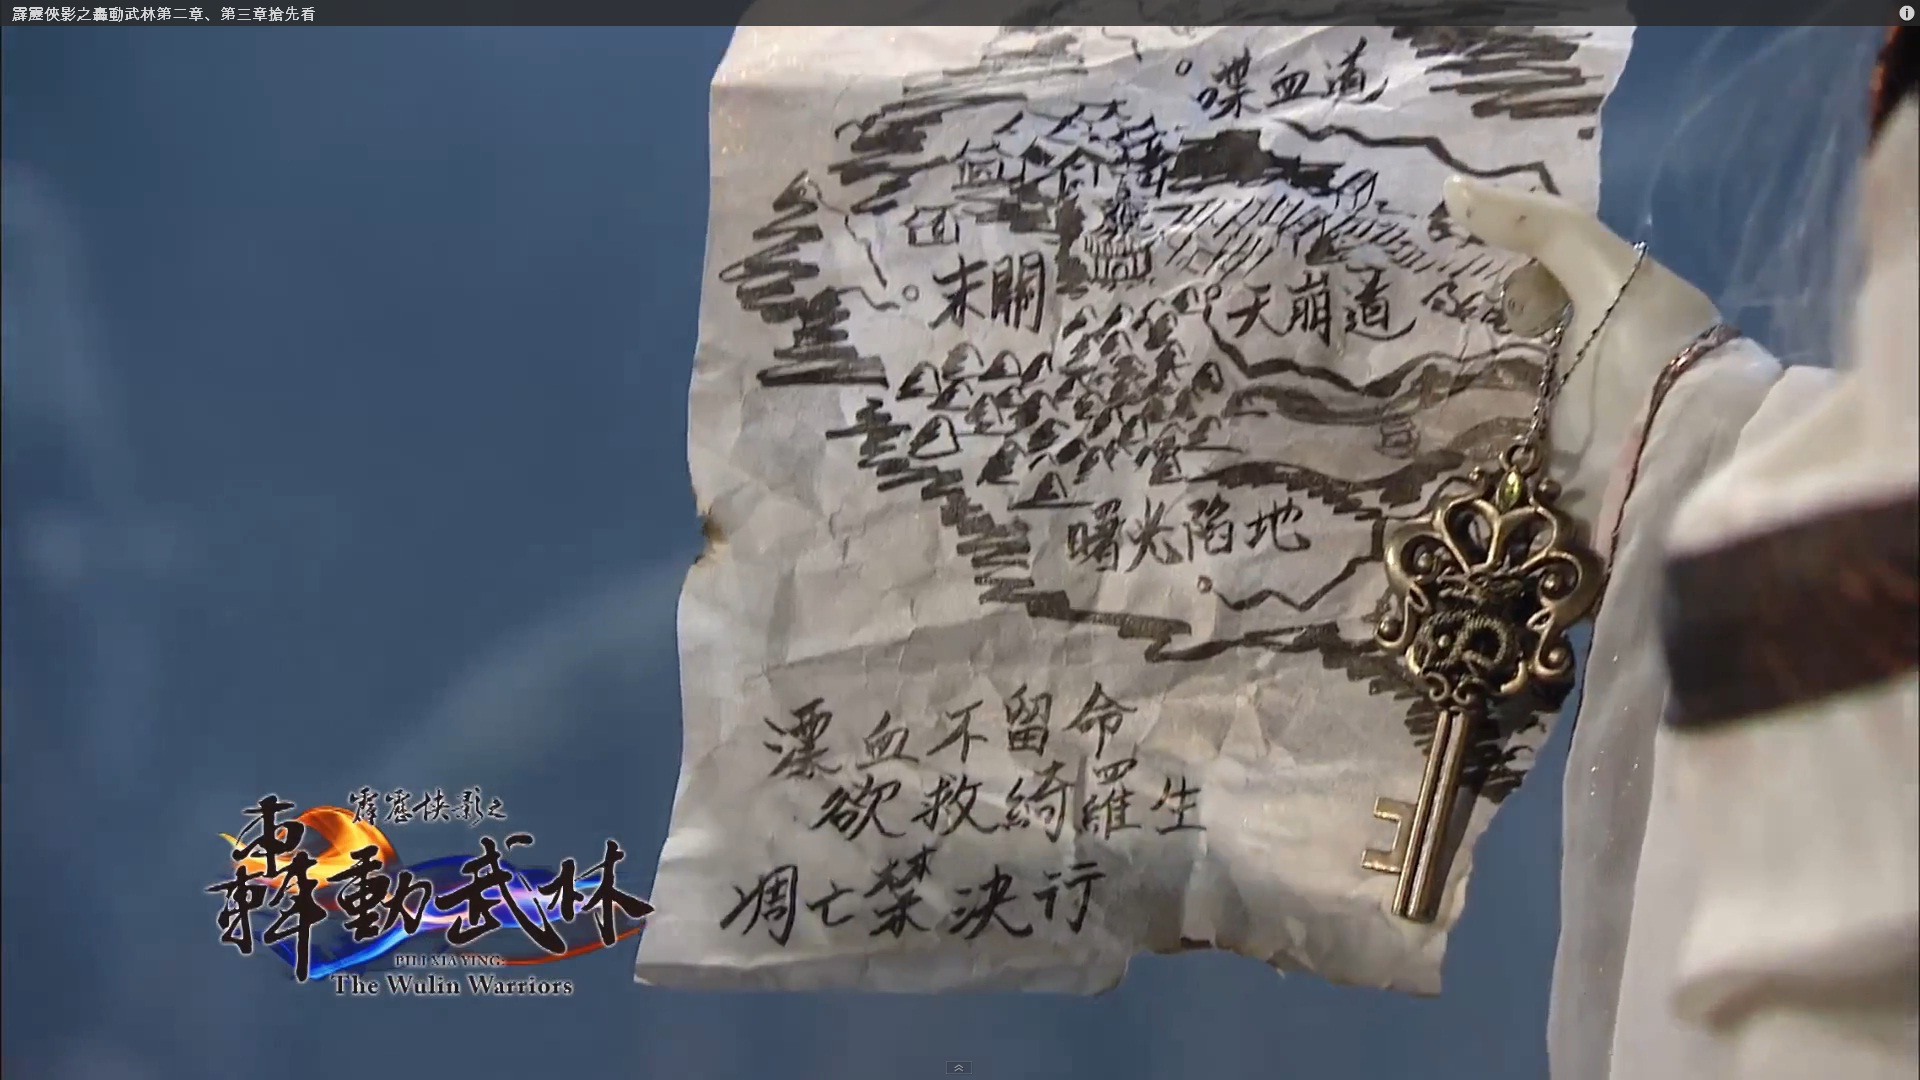 霹靂俠影之轟動武林第二章、第三章搶先看
喋血道
末關
天崩道
曙光陷地
漂血不留命
欲救綺羅生
凋亡禁決行
霹靂俠影之
轟動武林
PILI XIA YING:
The Wulin Warriors